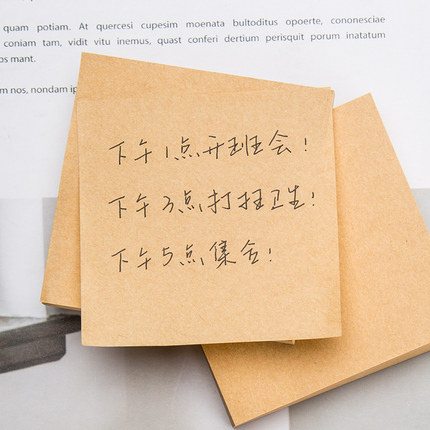 quam potiam. At quercesi cupesim moenata bultoditus opoerte, cononesciae
coniam tam, vidit vitu inemus, quast conferi dertium perisquit porum inatatum
os mant.
m nos, nondam ip
下午1点开班会!
下午3点打扫卫生!
下午5点集合!